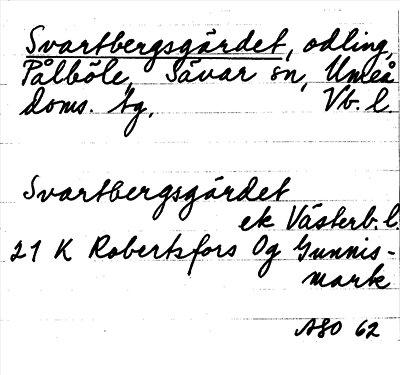 Svartbergsgärdet, odling,
Pålböle, Sävar sn, Umeå
doms. tg, Vb. l.
Svartbergsgärdet
ek Västerb. l.
21 K Robertsfors Og Gunnis-
mark
ASO 62